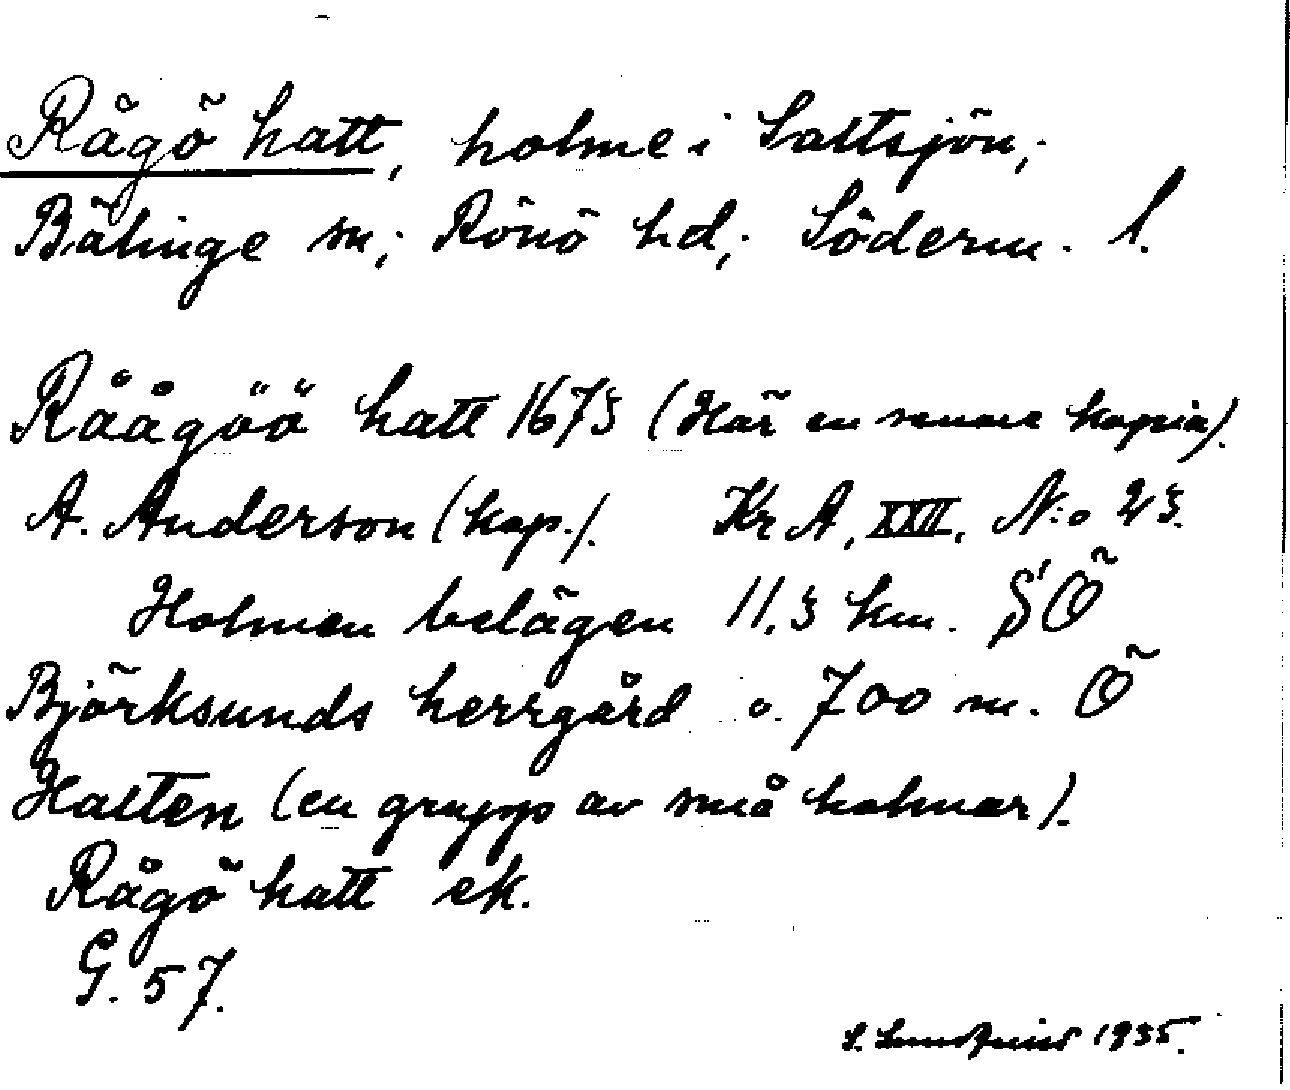 Rågö hatt, holme i Saltsjön,
Bälinge sn, Rönö hd, Söderm. l.
Råågöö hatt 1673 (Här en senare kopia).
A. Anderson (kop.). Kr A, XXII, N:o 23.
Holmen belägen 11,3 km. SÖ
Björksunds herrgård o. 700 m. Ö
Hatten (en grupp av små holmar).
Rågö hatt ek.
G. 57.
S. Lundquist 1935.